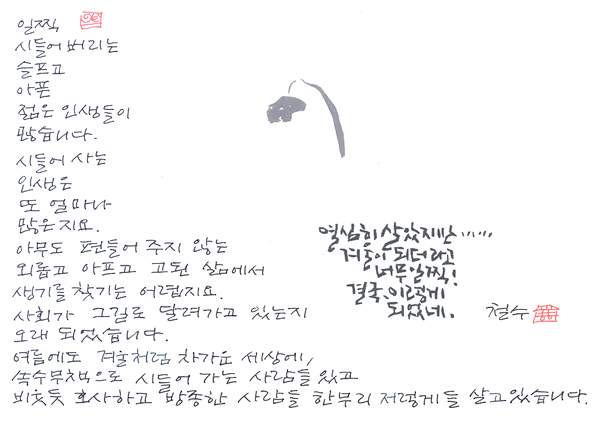 일찍
시들어버리는
슬프고
아픈
젊은 인생들이
많습니다.
시들어 사는
인생은
또 얼마나
많은지요.
아무도 편들어 주지 않는
외롭고 아프고 고된 삶에서
생기를 찾기는 어렵지요.
사회가 그길로 달려가고 있는지
오래 되었습니다.
여름에도 겨울처럼 차가운 세상에,
속수무책으로 시들어 가는 사람들 있고
비웃듯 호사하고 방종한 사람들 한무리 저렇게들 살고있습니다.
열심히 살았지만......
겨울이 되더라고
너무일찍!
결국, 이렇게
되었네.
철수